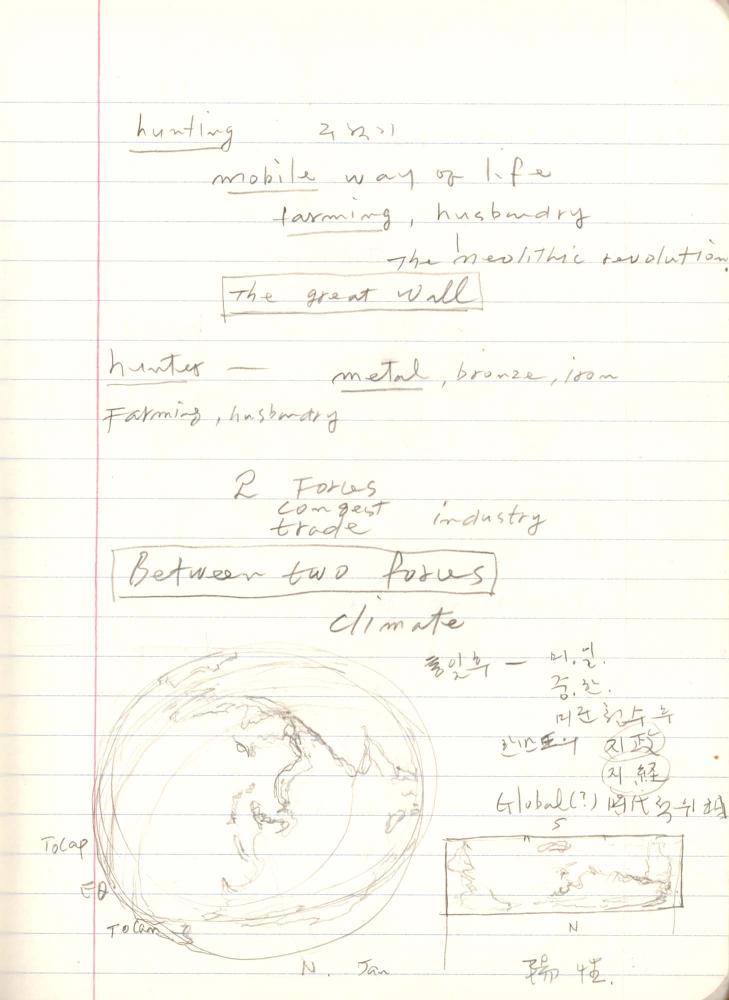 hunting
mobile way of life
farming, husbandry
The neolithic revolution.
The great Wall
hunter — metal, bronze, iron
Farming, husbandry
2 Forces
conqest
trade industry
Between two forces
climate
통일후 — 미.일.
중.한.
미군철수후
한반도의 지政
지経
Global(?) 時代
S
ToCap
EQ
ToCan
N
N. Jan
陽性.